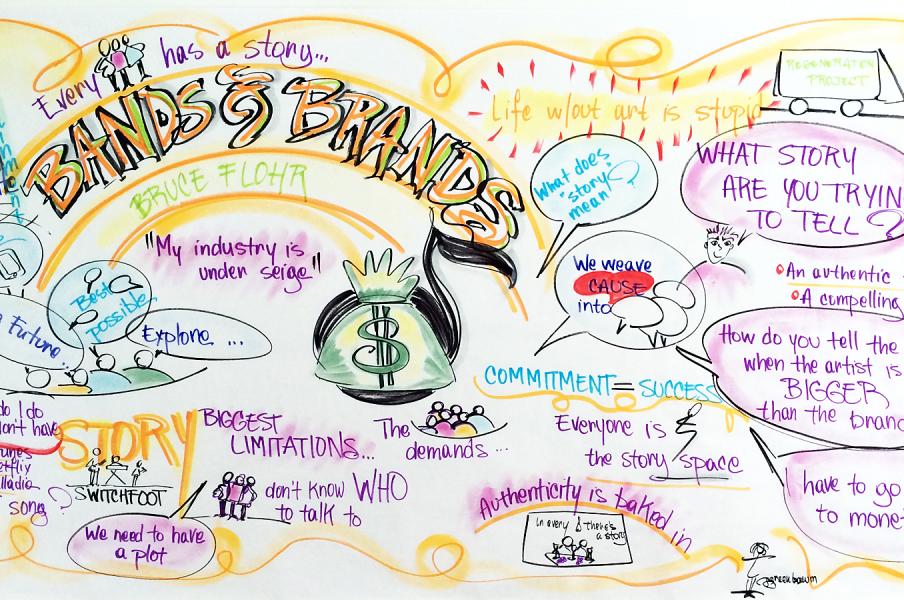 Every has a story...
BANDS & BRANDS
BRUCE FLOHR
"My industry is
under seige"
Best
possible
Future
Explore ...
do I do
don't have
song?
STORY
SWITCHFOOT
We need to have
a plot
BIGGEST
LIMITATIONS...
don't know WHO
to talk to
The
demands...
Life w/out art is stupid
REGENERATION
PROJECT
What does
"story"
mean?
We weave
CAUSE
into
COMMITMENT = SUCCESS
Everyone is
the story space
Authenticity is baked in
In every there's
a story
WHAT STORY
ARE YOU TRYIN
TO TELL?
An authentic
A compelling
How do you tell the
when the artist is
BIGGER
than the brand
have to go
to monet